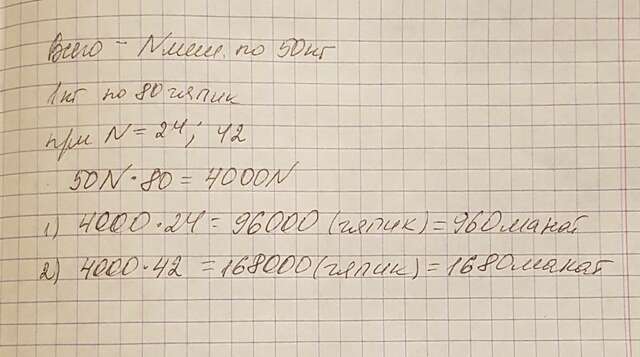 Всего - N меш. по 50кг
1кг по 80 гяпик
при N = 24; 42
50N · 80 = 4000N
1) 4000 · 24 = 96000 (гяпик) = 960 манат
2) 4000 · 42 = 168000 (гяпик) = 1680 манат